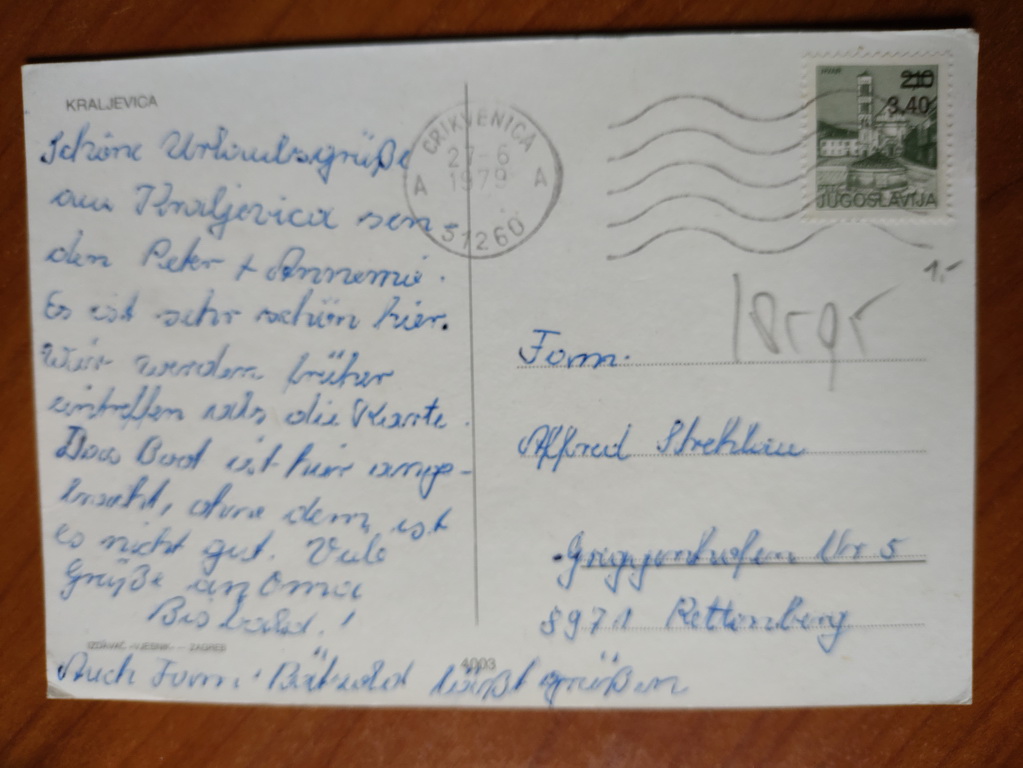 KRALJEVICA
Schöne Urlaubsgrüße
aus Kraljevica sen-
den Peter + Annemie.
Es ist sehr schön hier.
Wir werden früher
eintreffen als die Karte.
Das Boot ist hier ange-
bracht, ohne dem ist
es nicht gut. Viele
Grüße an Oma
Bis bald!
VJESNIK - ZAGREB
4003
Auch Fam. läßt grüßen
CRIKVENICA
27-6
1979
A A
51260
2,10
3,40
JUGOSLAVIJA
1.-
Fam.
Alfred Strehlau
Nr 5
8971 Rettenberg